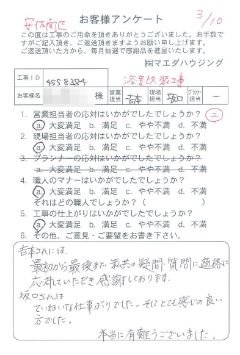 安佐南区
お客様アンケート
3/10
この度は工事のご用命を頂きありがとうございました。お手数で
すがご記入頂き、ご返送頂きますようお願い申し上げます。
ご返送頂いた方から、毎月抽選で感謝品を進呈いたします。
㈱マエダハウジング
工事ID 4558384 浴室改装工事
お客様名 様 営業担当 吉本 現場担当 坂口 プランナー担当 ー
1. 営業担当者の応対はいかがでしたでしょうか?
a 大変満足 b. 満足 c. やや不満 d. 不満
2. 現場担当者の応対はいかがでしたでしょうか?
a 大変満足 b. 満足 c. やや不満 d. 不満
3. プランナーの応対はいかがでしたでしょうか?
a. 大変満足 b. 満足 c. やや不満 d. 不満
4. 職人のマナーはいかがでしたでしょうか?
a 大変満足 b. 満足 c. やや不満 d. 不満
それはどの職人でしょうか?( )
5. 工事の仕上がりはいかがでしたでしょうか?
a 大変満足 b. 満足 c. やや不満 d. 不満
6. その他、ご意見・ご要望をお書き下さい。
吉本さんには、
最初から最後まで 疑問・質問に適格に
応えていただき感謝しております。
坂口さんは
ていねいな仕事がりでした。そしてとても感じの良い
方でした。
本当に有難うございました。